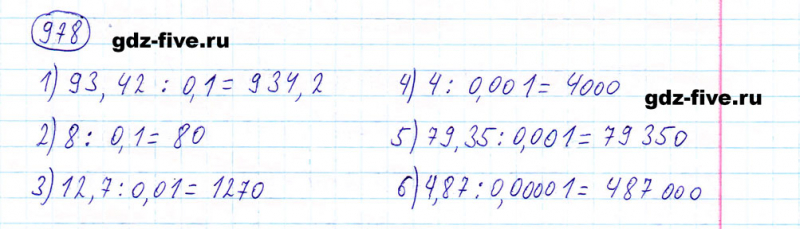 978
gdz-five.ru
1) 93,42 : 0,1 = 934,2
2) 8 : 0,1 = 80
3) 12,7 : 0,01 = 1270
4) 4 : 0,001 = 4000
gdz-five.ru
5) 79,35 : 0,001 = 79350
6) 4,87 : 0,00001 = 487000